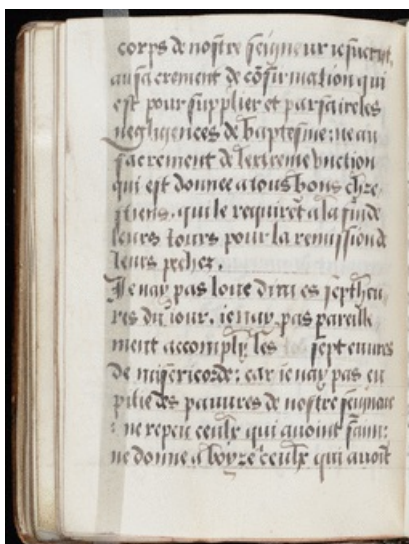 corps de nostre seigneur iesucrist,
au sacrement de cōfirmation qui
est pour supplier et parfaire les
negligences de baptesme: ne au
sacrement de lextreme vnction
qui est donnee a tous bons chre-
stiens, qui le requirēt a la fin de
leurs iours pour la remission de
leurs pechez.
Je nay pas loue dieu es sept heu-
res du iour, ie nay pas pareille
ment accomply les sept euures
de misericorde: car ie nay pas eu
pitie des pauures de nostre seigneur
: ne repeu ceulx qui auoint faim:
ne donne a boyre ceulx qui auoiēt